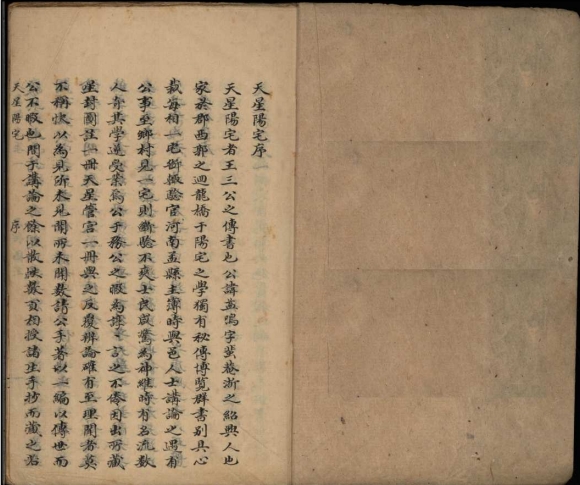 天星陽宅序
天星陽宅者王三公之傳書也公諱 字 菴浙之紹興人也
家於郡西郭之迴龍橋于陽宅之學獨有秘傳博覽群書別具心
裁每相一宅斷輒驗官河南孟縣主簿時與邑人士講論之遇有
公事至鄉村見一宅則斷驗不爽士民咸驚為神維時有名流數
人奇其學遂受業焉公于務公之暇為 之不倦因出所藏
星封圖註一冊天星管宮一冊與之反覆辨論確有至理聞者莫
不稱快以為見所未見聞所未聞數請公手著以一編以傳世而
公不暇也間于講論之餘以散帙數頁相授諸生手抄而藏之若
天星陽宅 序